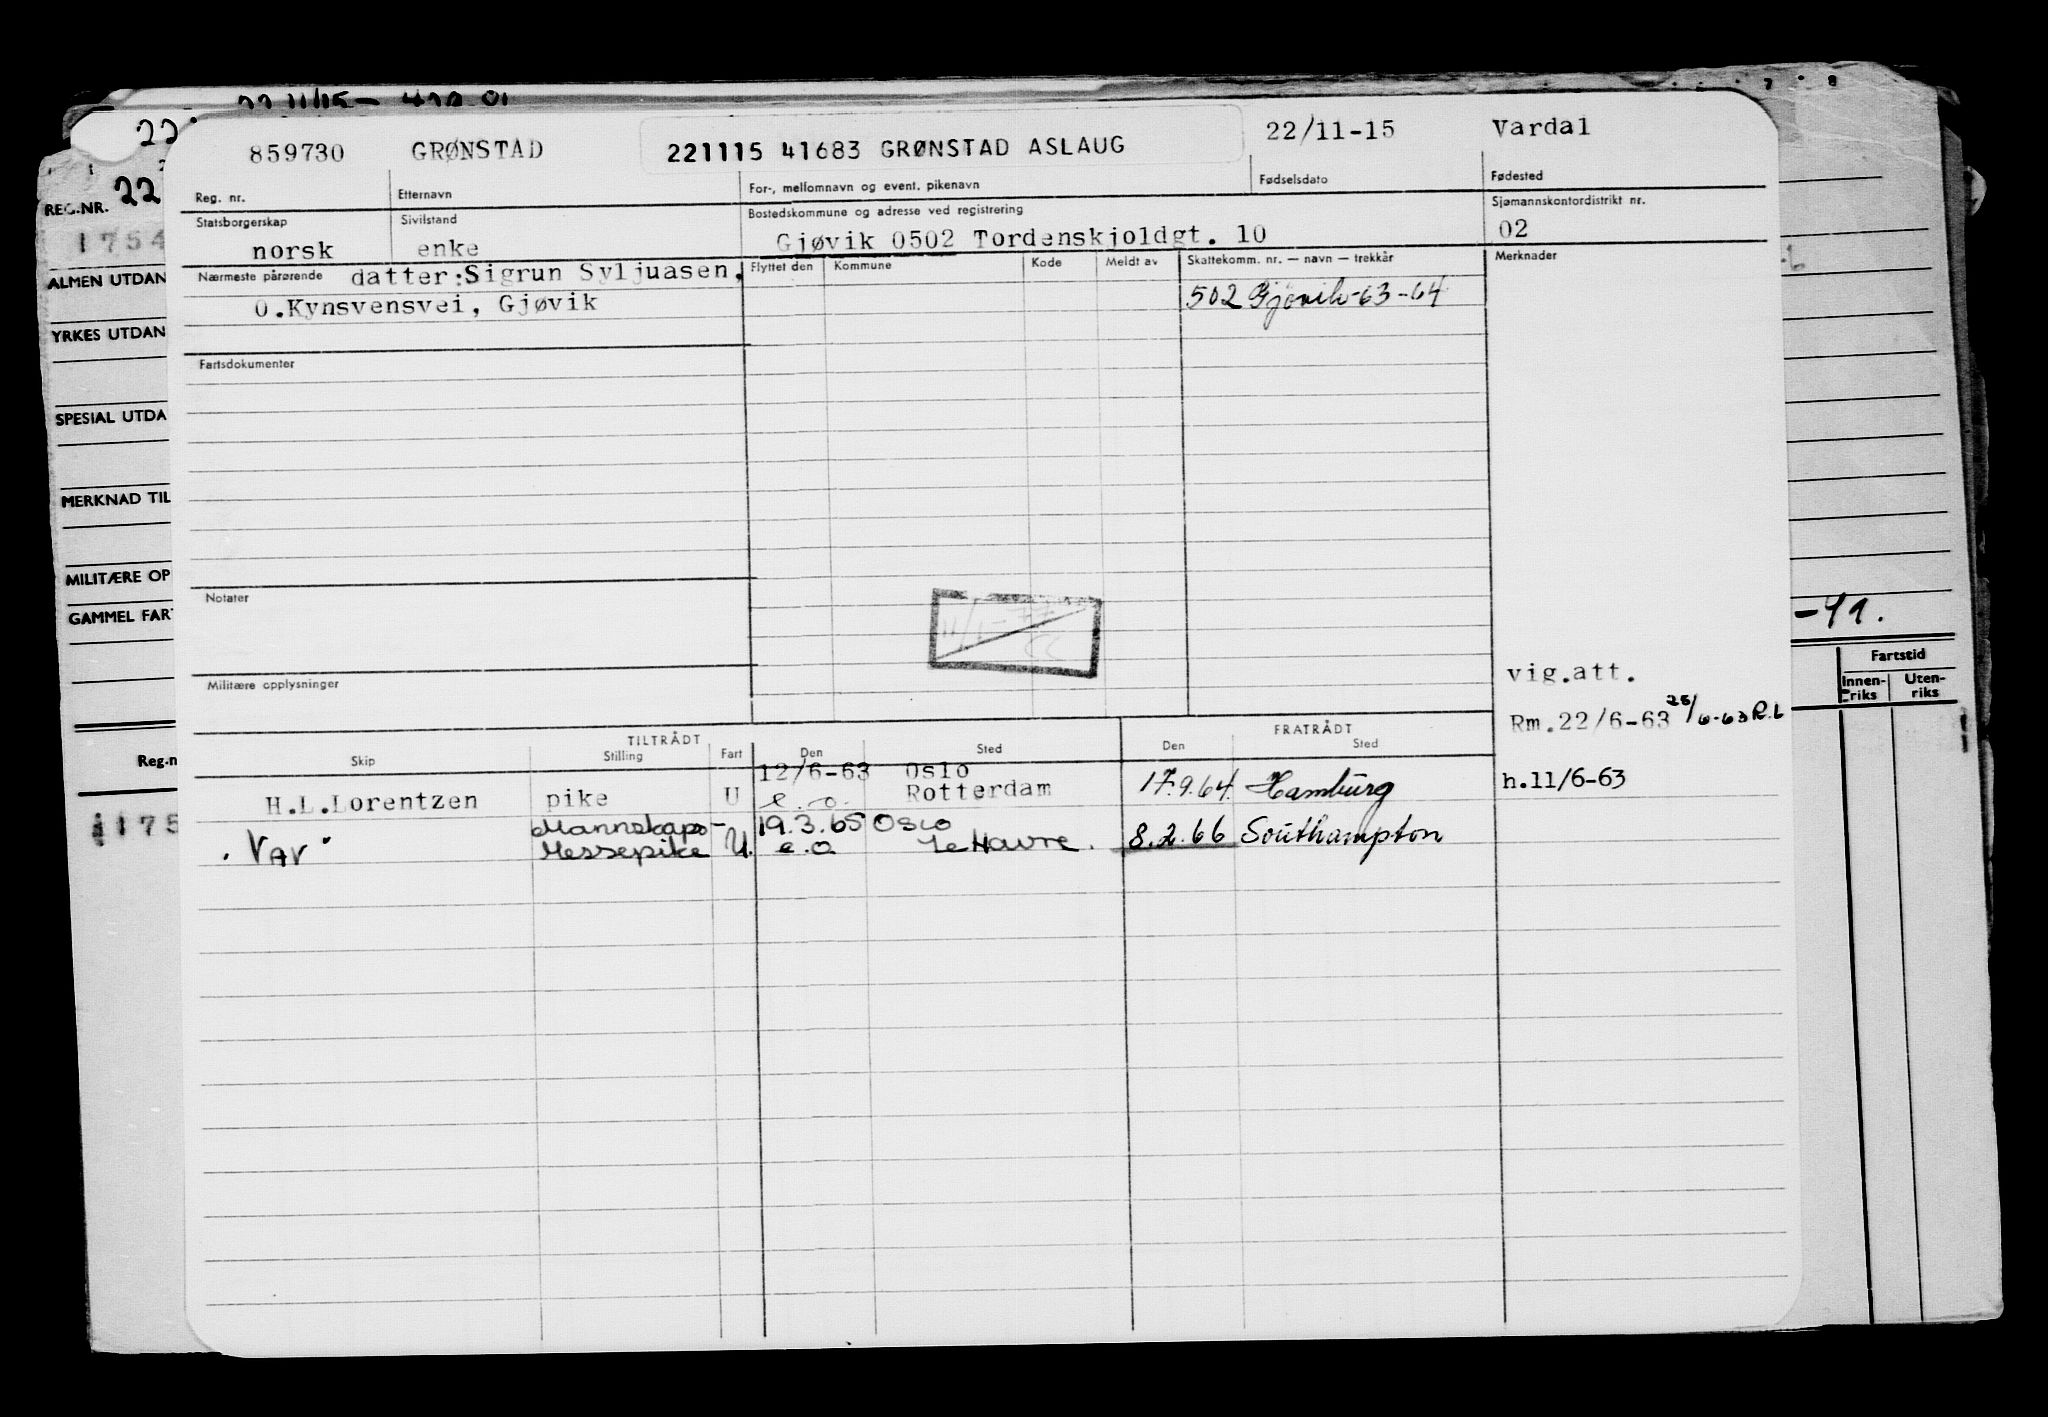 22 11/15 -
22
859730 GRØNSTAD 221115 41683 GRØNSTAD ASLAUG 22/11-15 Vardal
Reg. nr. Etternavn For-, mellomnavn og event. pikenavn Fødselsdato Fødested
REG.NR. 22
Statsborgerskap Sivilstand Bostedskommune og adresse ved registrering Sjømannskontordistrikt nr.
norsk enke Gjøvik 0502 Tordenskjoldgt. 10 02
1754
Nærmeste pårørende datter: Sigrun Syljuasen, Flyttet den Kommune Kode Meldt av Skattekomm. nr. — navn — trekkår Merknader
O.Kynsvensvei, Gjøvik 502 Gjøvik-63-64
ALMEN UTDAN
YRKES UTDAN
Fartsdokumenter
SPESIAL UTDA
MERKNAD TIL
MILITÆRE OP
Notater
GAMMEL FART
-41.
Militære opplysninger
vig.att.
Fartstid
Innen-riks Uten-riks
Rm.22/6-63 25/6-63 R.L
TILTRÅDT FRATRÅDT
Skip Stilling Fart Den Sted Den Sted
Reg.n
12/6-63 Oslo
H.L.Lorentzen pike U e.o. Rotterdam 17.9.64. Hamburg h.11/6-63
175
Mannskaps- 19.3.65 Oslo
"Vav" Messepike U. e.o Le Havre. 8.2.66 Southampton